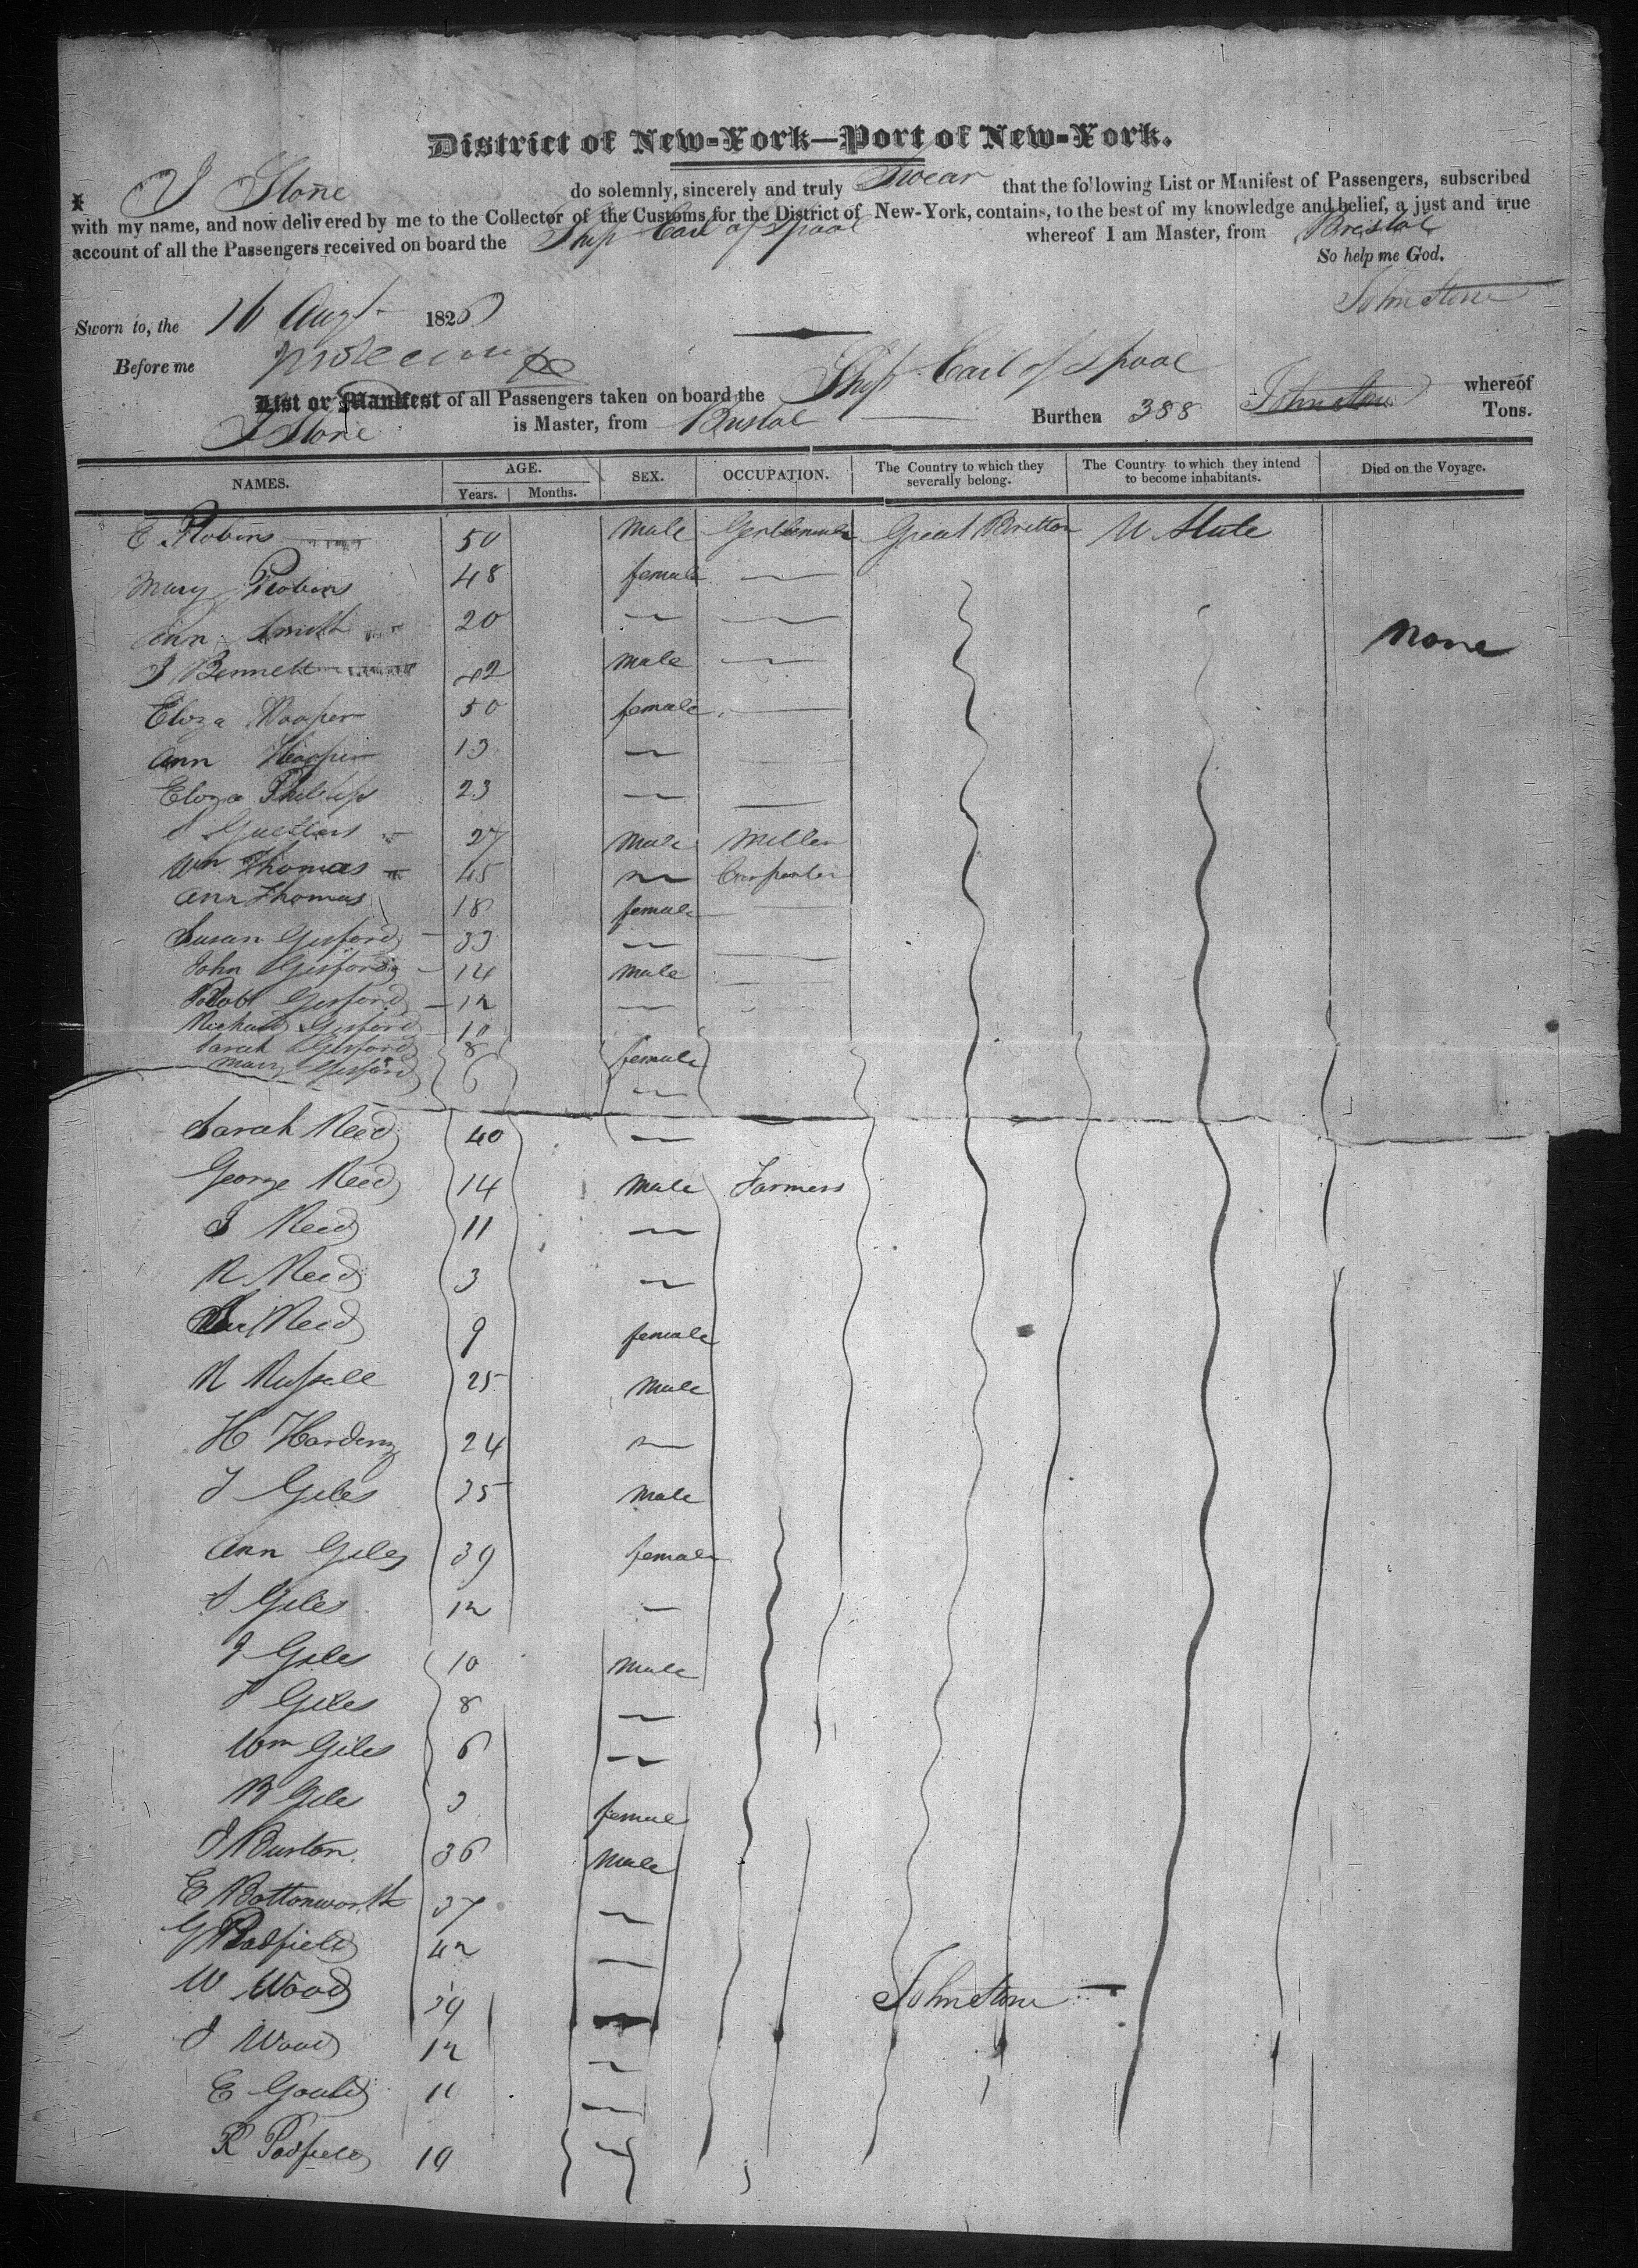 District of New-York—Port of New-York.
I J Stone do solemnly, sincerely and truly Swear that the following List or Manifest of Passengers, subscribed
with my name, and now delivered by me to the Collector of the Customs for the District of New-York, contains, to the best of my knowledge and belief, a just and true
account of all the Passengers received on board the Ship Earl of Lpool whereof I am Master, from Bristol
So help me God.
John Stone
Sworn to, the 16 Augt 1826
Before me
List or Manifest of all Passengers taken on board the Ship Earl of Lpool John Stone whereof
J Stone is Master, from Bristol Burthen 388 Tons.
NAMES. AGE. SEX. OCCUPATION. The Country to which they severally belong. The Country to which they intend to become inhabitants. Died on the Voyage.
Years. Months.
E Robins 50 Male Gentleman Great Britton U State
Mary Robins 48 female
Ann Smith 20
None
J Bennett 42 Male
Eliza Hooper 50 female
Ann Hooper 13
Eliza Phillips 23
27 Male Miller
Wm Thomas 45 Carpenter
Ann Thomas 18 female
Susan Gisford 33
John Gisford 14 Male
Robt Gisford 12
Richard Gisford 10
Sarah Gisford 8 female
Mary Gisford 6
Sarah Reed 40
George Reed 14 Male Farmers
J Reed 11
R Reed 3
Reed 9 female
R Russell 25 Male
H Harding 24
J Giles 35 Male
Ann Giles 39 female
S Giles 12
J Giles 10 Male
J Giles 8
Wm Giles 6
B Gile 3 female
J Burton 36 Male
E Bottonworth 37
G Padfield 42
W Wood 39
John Stone
J Wood 12
E Gould 11
R Padfield 19